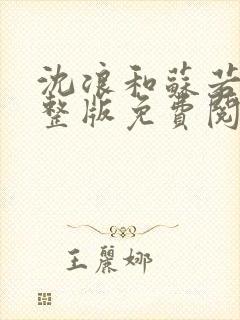 沈浪和蘇若
整版免費閱
王麗娜